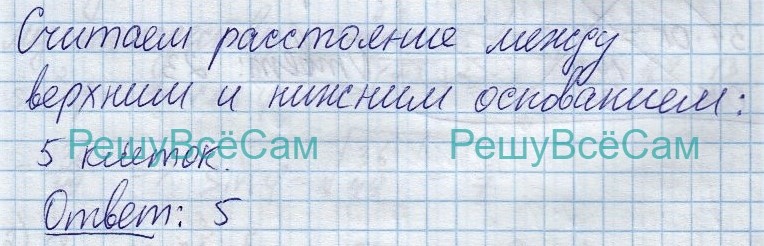 Считаем расстояние между
верхним и нижним основанием:
5 клеток.
РешуВсёСам РешуВсёСам
Ответ: 5